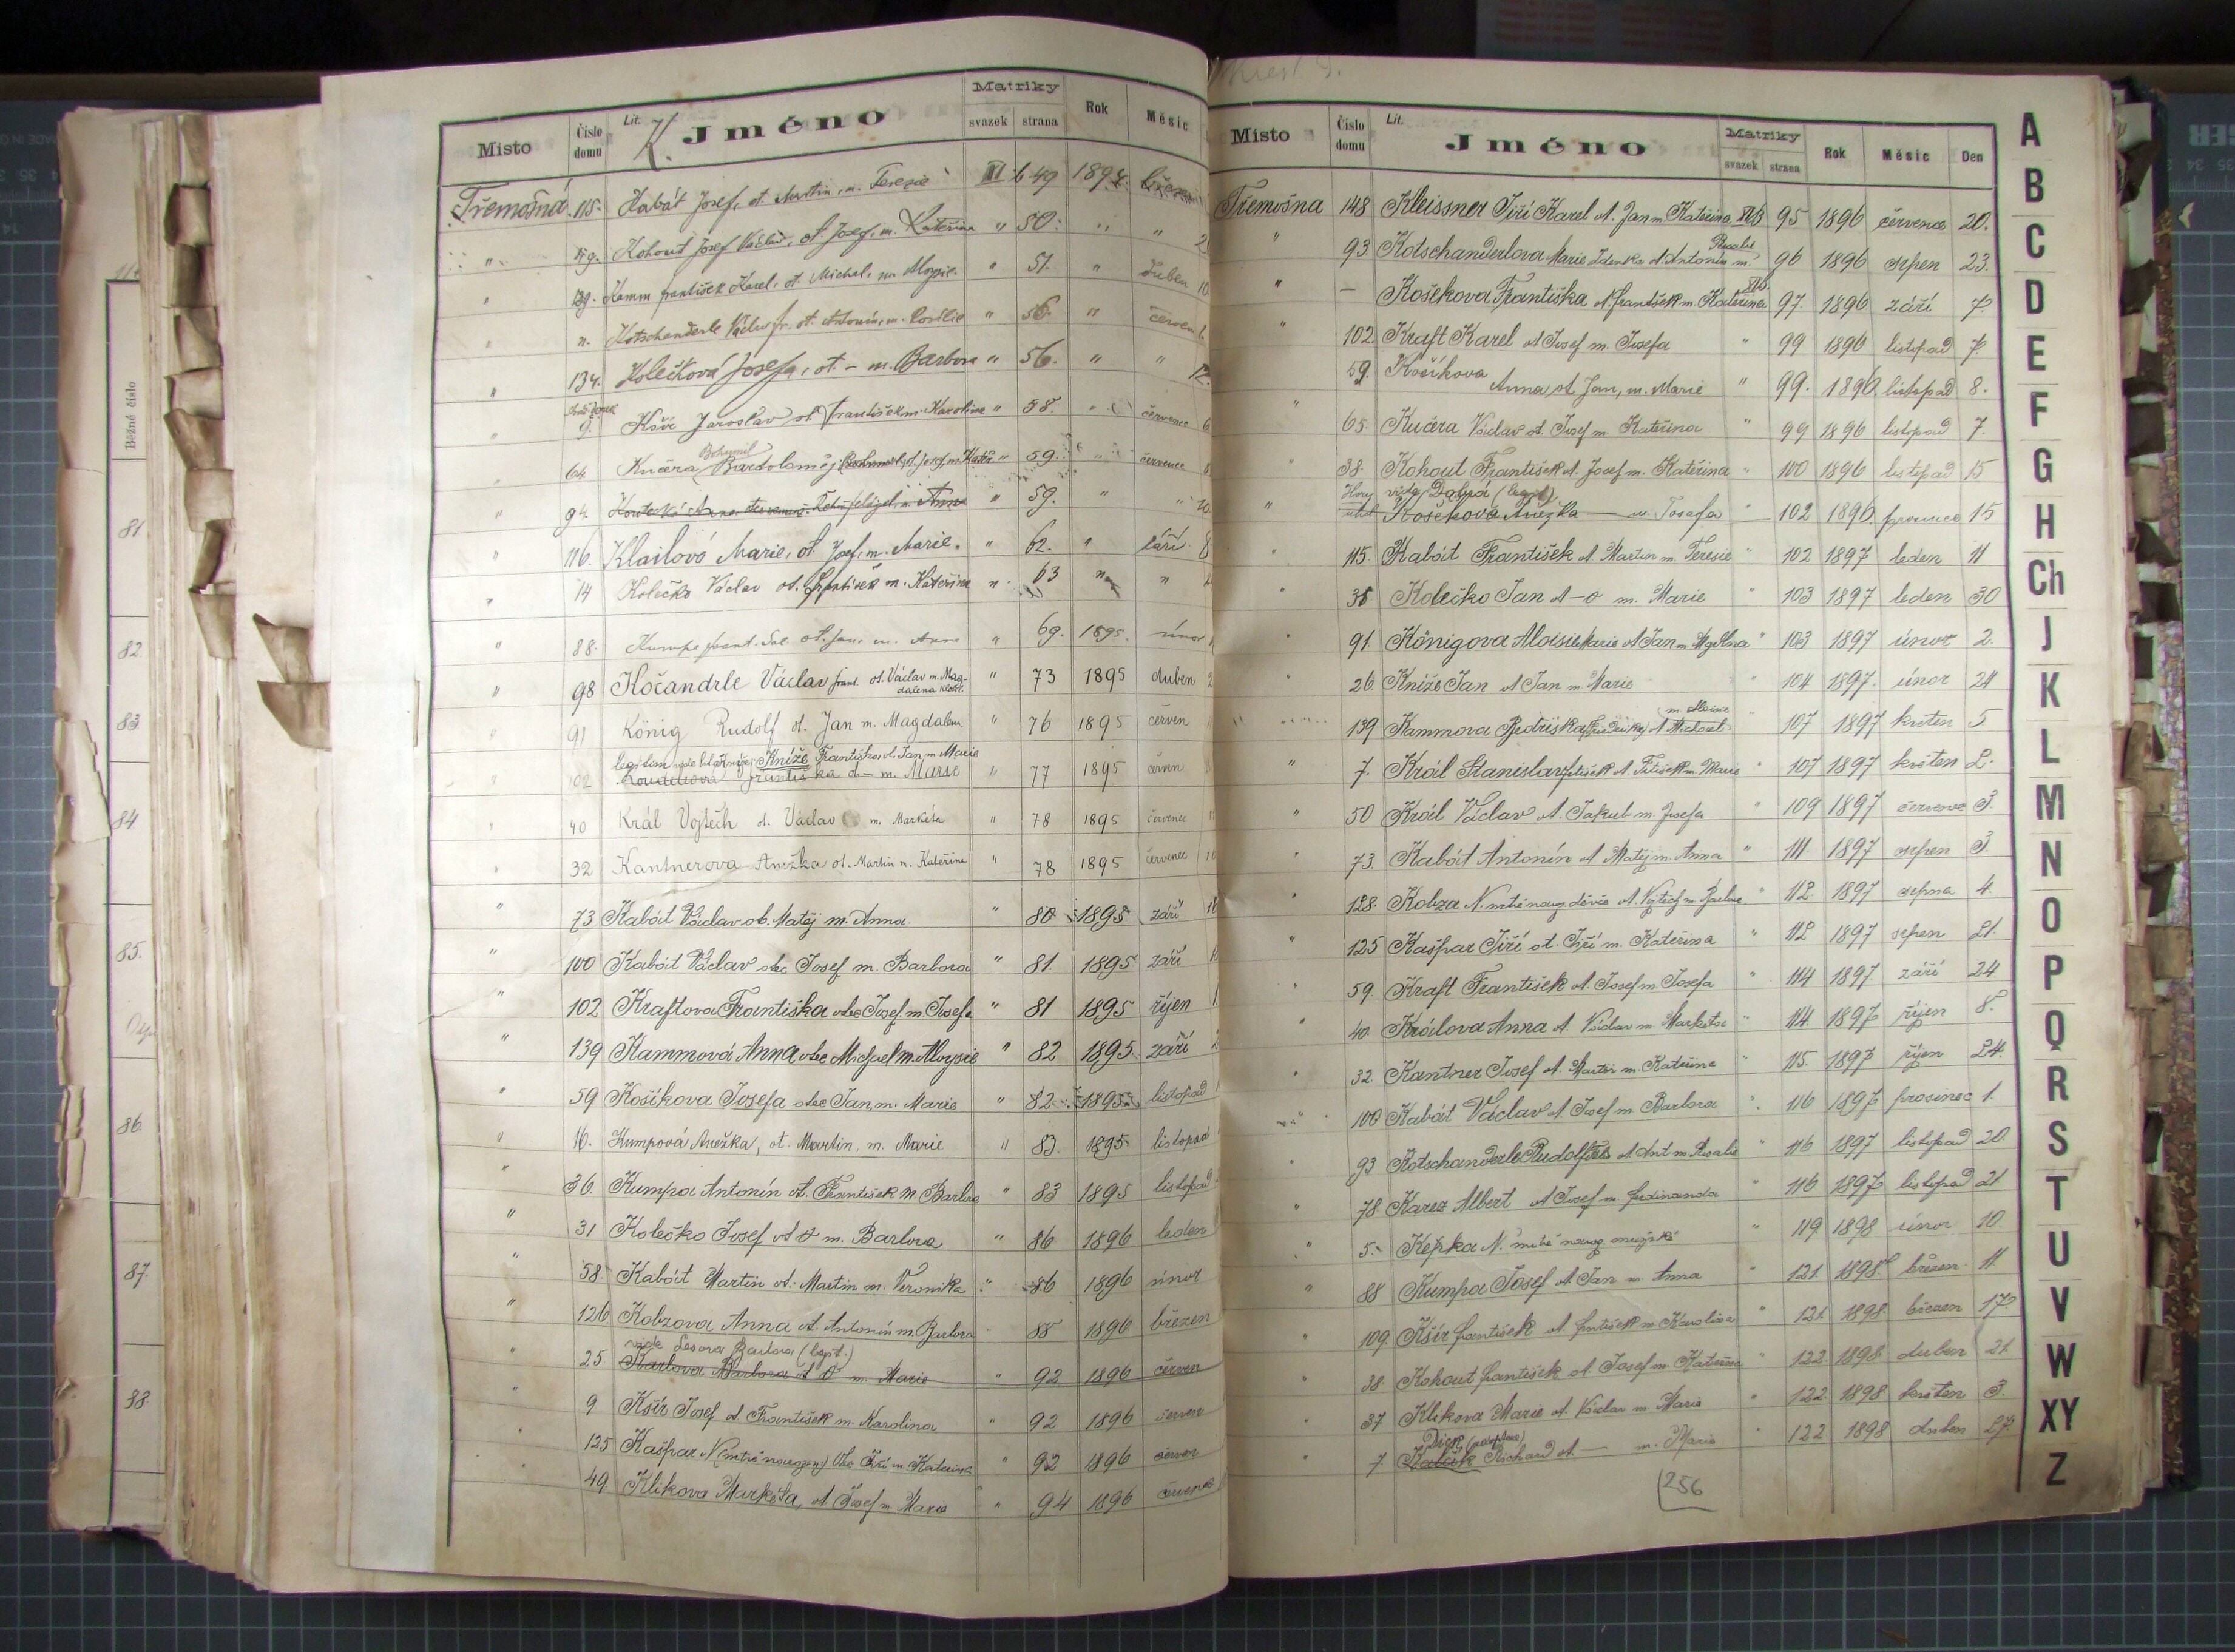 Místo Číslo domu Lit. K. Jméno Matriky svazek strana Rok Měsíc
Třemošná 115. Kabát Josef, ot. Martin, m. Teresie III b 49 1894
" Kohout Josef Václav, ot. Josef, m. Kateřina " 50. " "
" 139. Kamm František Karel, ot. Michal, m. Aloysie " 51. " Duben 10
" Kotschanderle Václav fr. ot. Antonín, m. Rosalie " 56. " červen
" 134. Kolečková Josefa, ot. – m. Barbora " 56. " " 12.
" 9. Kšír Jaroslav ot. František m. Karolina " 58. " červenec 6
" 64. Kučera Bartoloměj ot. Josef m. Kateř " 59. " červenec
Bohumil
" 94. " 59. " " 20
" 116. Klailová Marie, ot. Josef, m. Marie. " 62. " Září 8
" 14 Kolečko Václav ot. František m. Kateřina " 63 " "
" 88. Kumpa frant. ot. Jan, m. Anna " 69. 1895. únor
" 98 Kočandrle Václav frant. ot. Václav m. Mag- " 73 1895 duben
dalena
" 91 König Rudolf ot. Jan m. Magdalena " 76 1895 červen
legitim vide Kníže Františka ot. Jan m. Marie
" 102 Koudelová Františka ot – m. Marie " 77 1895 červen
" 40 Král Vojtěch ot. Václav m. Markéta " 78 1895 červenec
" 32 Kantnerova Anežka ot. Martin m. Kateřina " 78 1895 červenec 10
" 73 Kabát Václav ot. Matěj m. Anna " 80 1895 září
" 100 Kabát Václav otec Josef m. Barbora " 81. 1895 září
" 102 Kraftova Františka otec Josef m. Josefa " 81 1895 říjen
" 139 Kammová Anna otec Michael m. Aloysie " 82 1895 září
" 59 Košíkova Josefa otec Jan, m. Marie " 82 1895 listopad
" 16. Kumpová Anežka, ot. Martin, m. Marie " 83. 1895 listopad
" 36 Kumpa Antonín ot. František m. Barbora " 83 1895 listopad
" 31 Kolečko Josef ot 0 m. Barbora " 86 1896 leden
" 58. Kabát Martin ot. Martin m. Veronika " 86 1896 únor
" 126 Kobzova Anna ot Antonín m. Barbora 88 1896 březen
vide Barbora (legit.)
" 25 Karlova Barbora ot 0 m. Marie " 92 1896 červen
" 9 Kšír Josef ot František m. Karolina " 92 1896 červen
125 Kašpar N (mrtvě narozen) Otec Jiří m Kateřina " 92 1896 červen
49 Klikova Markéta, ot. Josef m Marie " 94 1896 červenec
Místo Číslo domu Lit. Jméno Matriky svazek strana Rok Měsíc Den
Třemošna 148 Kleissner Jiří Karel ot. Jan m Kateřina III b 95 1896 července 20.
Rosalie
" 93 Kotschanderlova Marie Zdenka ot Antonín m. 96 1896 srpen 23.
" – Košekova Františka ot František m. Kateřina 97. 1896 září 7.
102. Kraft Karel ot Josef m. Josefa " 99 1896 listopad 7.
59. Košíkova
" Anna ot. Jan, m. Marie " 99. 1896 listopad 8.
65 Kučera Václav ot. Josef m Kateřina " 99 1896 listopad 7.
" 38. Kohout František ot. Josef m. Kateřina " 100 1896 listopad 15
vide Dobrá (legit)
" Košekova Anežka — m. Josefa " 102 1896 prosinec 15
" 115. Kabát František ot Martin m. Teresie " 102 1897 leden 11
" 35 Kolečko Jan ot – 0 m. Marie " 103 1897 leden 30
" 91. Königova Aloisie Marie ot Jan m. Mgdlna " 103 1897 únor 2.
" 26 Kníže Jan ot Jan m Marie " 104 1897. únor 24
" 139 Kammova Bedřiška ot Michael 107 1897 květen 5
" 7. Král Stanislav ftišek ot Ftišek m. Marie " 107 1897 květen 2.
" 50 Král Václav ot. Jakub m. Josefa " 109 1897 července 3.
" 73. Kabát Antonín ot Matěj m. Anna " 111 1897 srpen 3
" 128. Kobza N. mrtvě naroz. děvče ot. Vojtěch m. " 112 1897 srpna 4.
" 125 Kašpar Jiří ot. Jiří m. Kateřina " 112 1897 srpen 21.
" 59. Kraft František ot Josef m Josefa " 114 1897 září 24
" 40. Králova Anna ot Václav m. Markéta " 114. 1897 říjen 8.
" 32. Kantner Josef ot. Martin m. Kateřina " 115. 1897 říjen 24.
" 100 Kabát Václav ot Josef m Barbora " 116 1897 prosinec 1.
" 93 Kotschanderle Rudolf ot Ant m Rosalie " 116 1897 listopad 20
" 78 Karez Albert ot Josef m. Ferdinanda " 116 1897 listopad 21
" 5. Kepka N. mrtvě naroz. mužské " 119 1898 únor 10
" 88 Kumpa Josef ot. Jan m. Anna " 121. 1898 březen. 11.
" 109 Kšír František ot. frantisek m Karolina " 121. 1898. březen 17.
" 38. Kohout frantisek ot Josef m Kateřina " 122. 1898. duben 21.
" 37 Klikova Marie ot. Václav m. Marie " 122 1898 květen 3.
" 7 Richard ot. — m. Marie " 122 1898 duben 27.
256
A
B
C
D
E
F
G
H
Ch
J
K
L
M
N
O
P
Q
R
S
T
U
V
W
XY
Z
Běžné číslo
81
82
83
84
85.
86
87.
88.